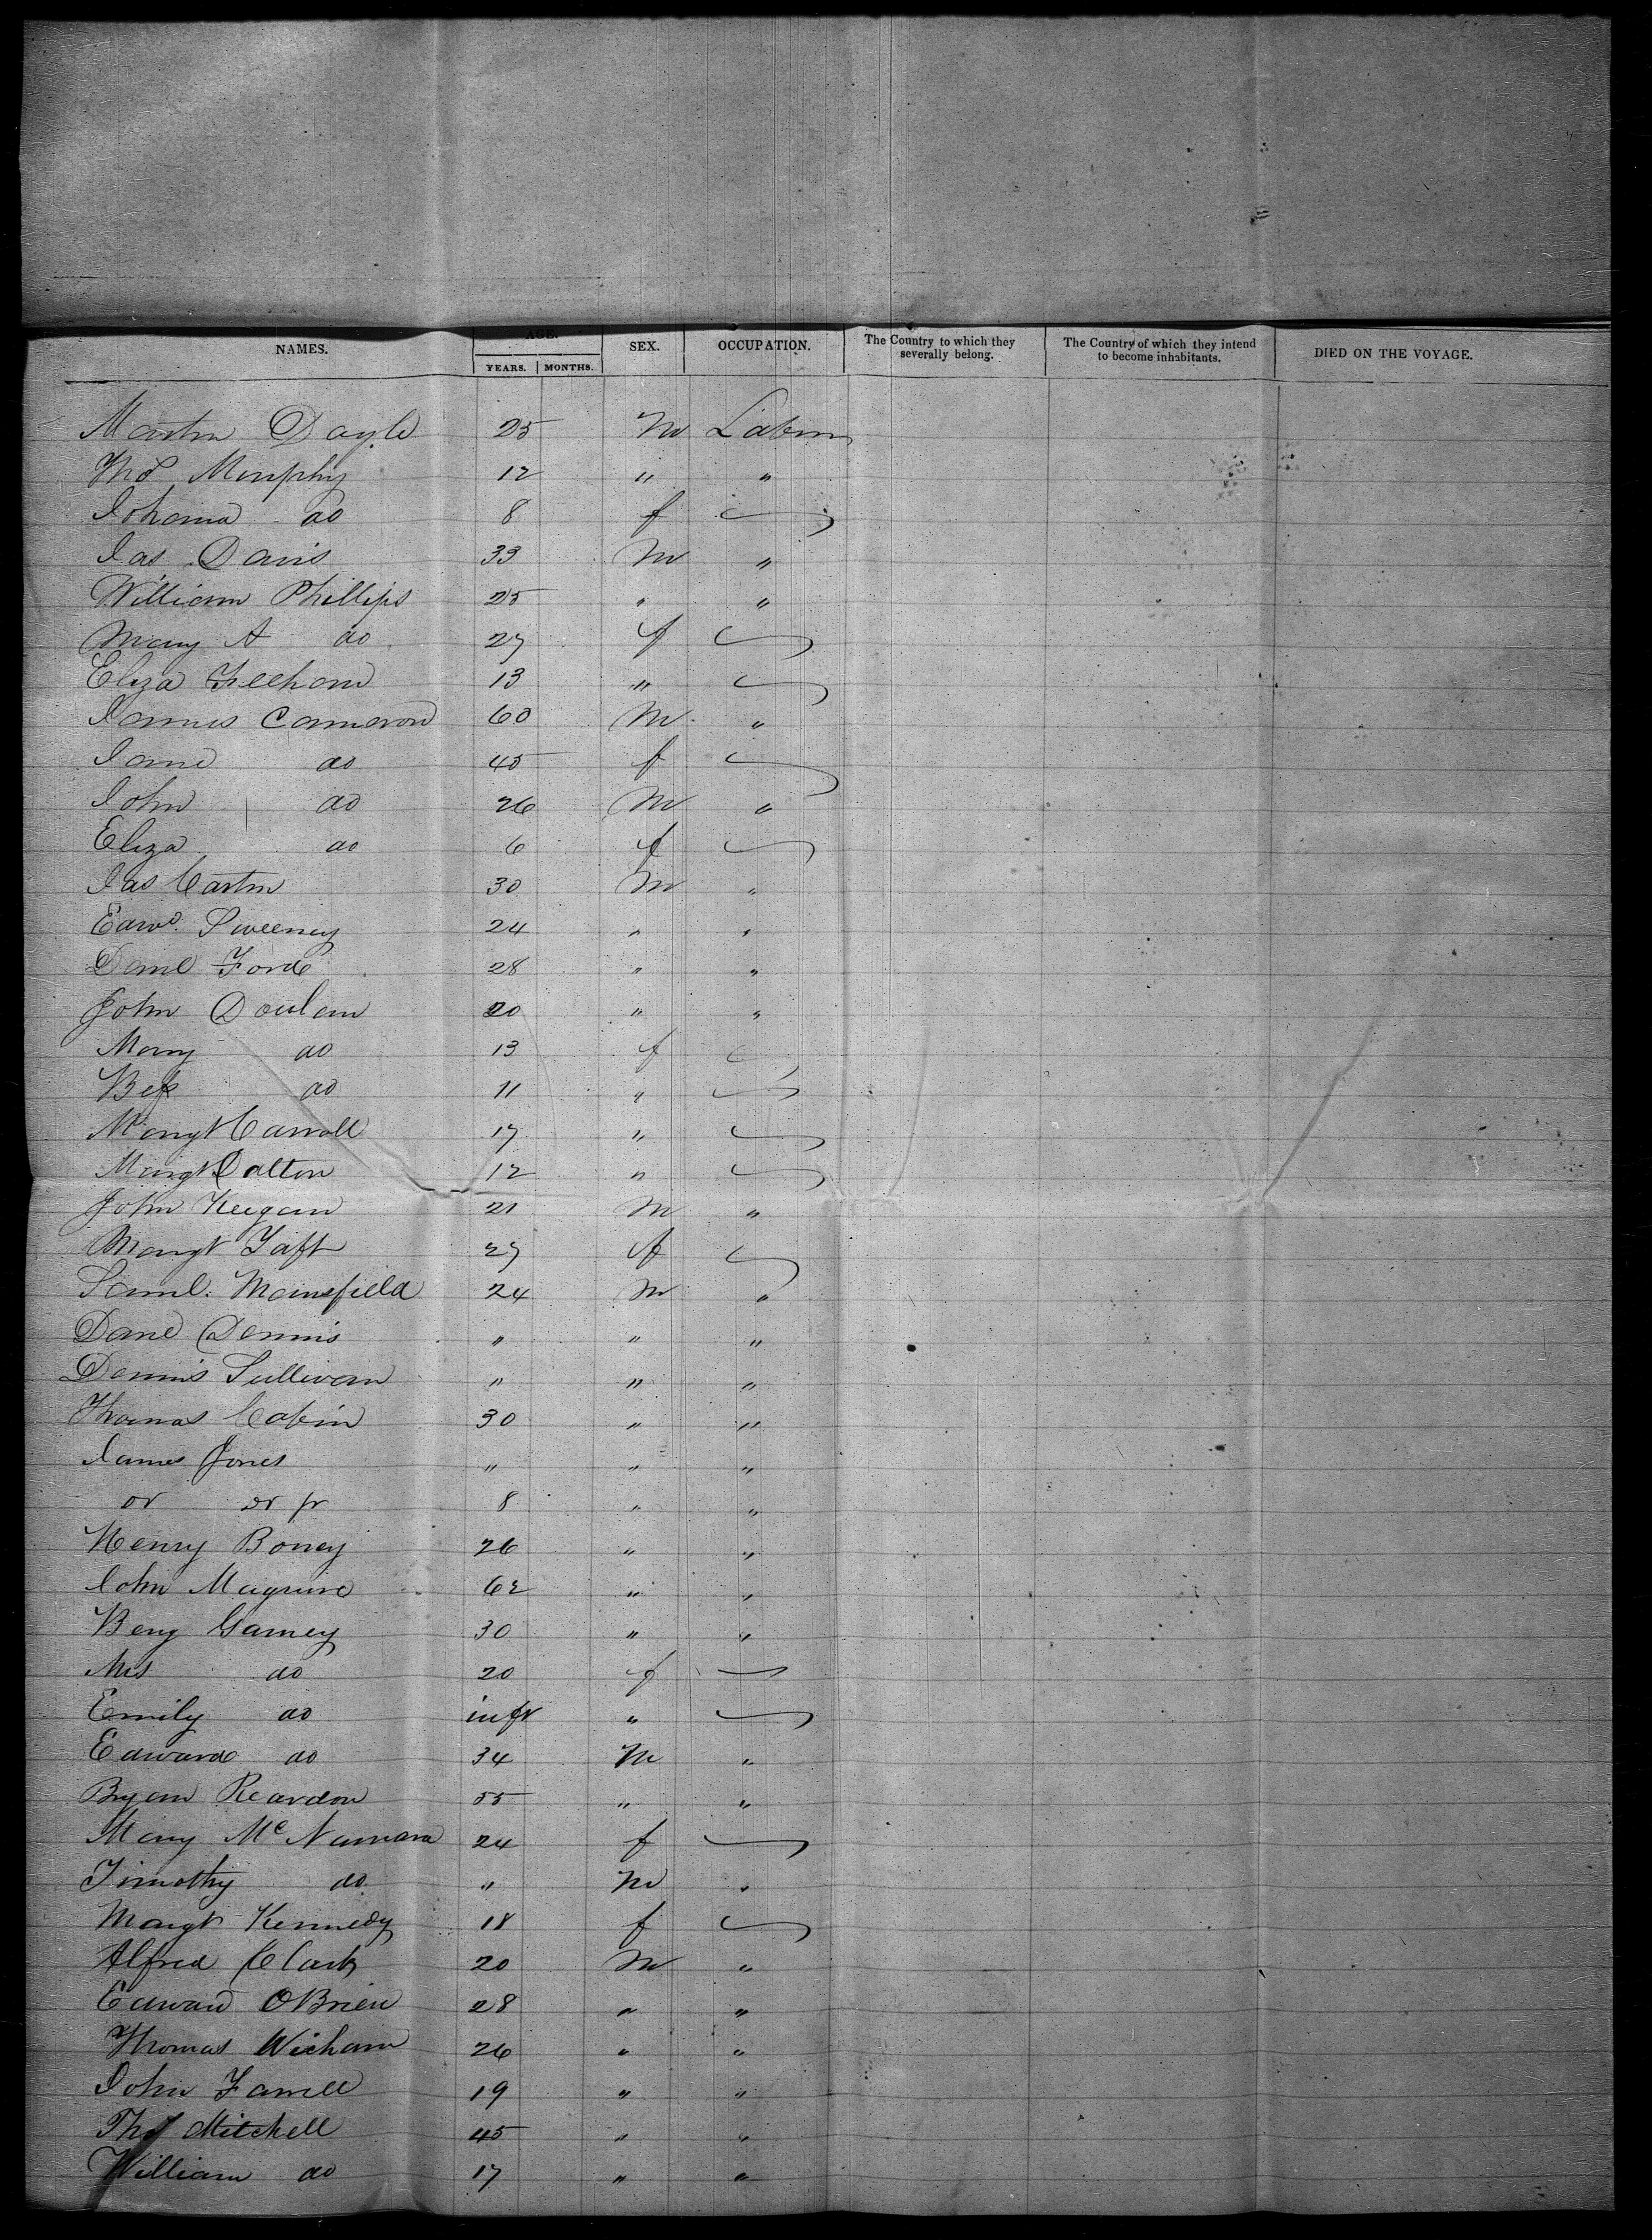 NAMES. AGE. YEARS. MONTHS. SEX. OCCUPATION. The Country to which they severally belong. The Country of which they intend to become inhabitants. DIED ON THE VOYAGE.
Martin Doyle 25 M Labrn
Thos Murphy 12 " "
Johanna do 8 f
Jas Davis 33 M "
William Phillips 25 " "
Mary A do 27 f
Eliza Feehan 13 "
James Cameron 60 M "
Jane do 45 f
John do 26 M "
Eliza do 6 f
Jas Carton 30 M "
Edwd. Sweeney 24 " "
Danl Ford 28 " "
John Doulan 20 " "
Mary do 13 f
Bess do 11 "
Margt Carroll 17 "
Margt Dalton 12 "
John Keegan 21 M "
Margt Taft 27 f
Saml. Mansfield 24 M "
Danl Dennis " " "
Dennis Sullivan " " "
Thomas 30 " "
James Jones " " "
or or jr 8 " "
Henry Boney 26 " "
John Maguire 62 " "
Benj Garney 30 " "
Mrs do 20 f
Emily do inft "
Edward do 34 M "
Bryan Reardon 55 " "
Mary McNamara 24 f
Timothy do " M "
Margt Kennedy 18 f
Alfred Clark 20 M "
Edward OBrien 28 " "
Thomas Wickam 26 " "
John Farrell 19 " "
Thos Mitchell 45 " "
William do 17 " "